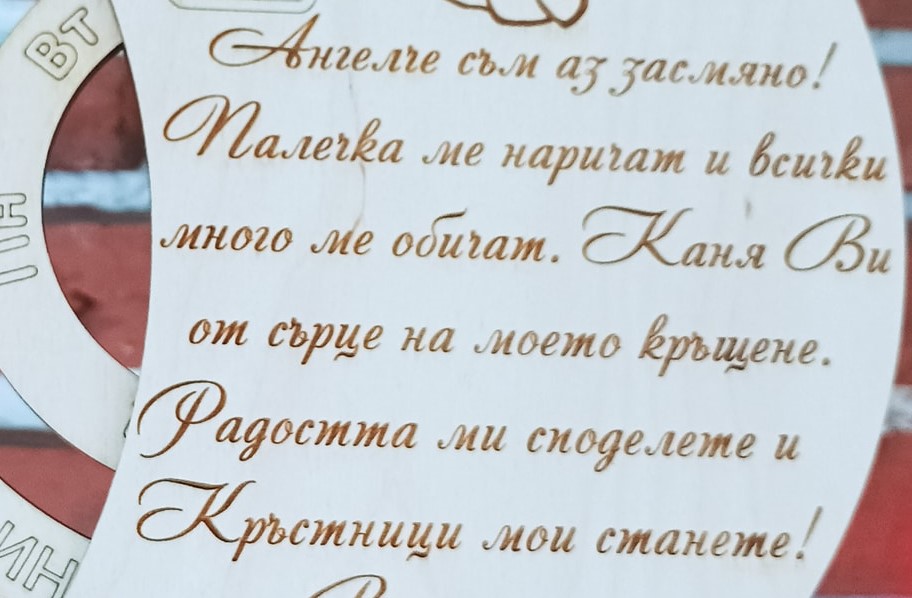 ВТ
Ангелче съм аз засмяно!
Палечка ме наричат и всички
много ме обичат. Каня Ви
от сърце на моето кръщене.
Радостта ми споделете и
Кръстници мои станете!